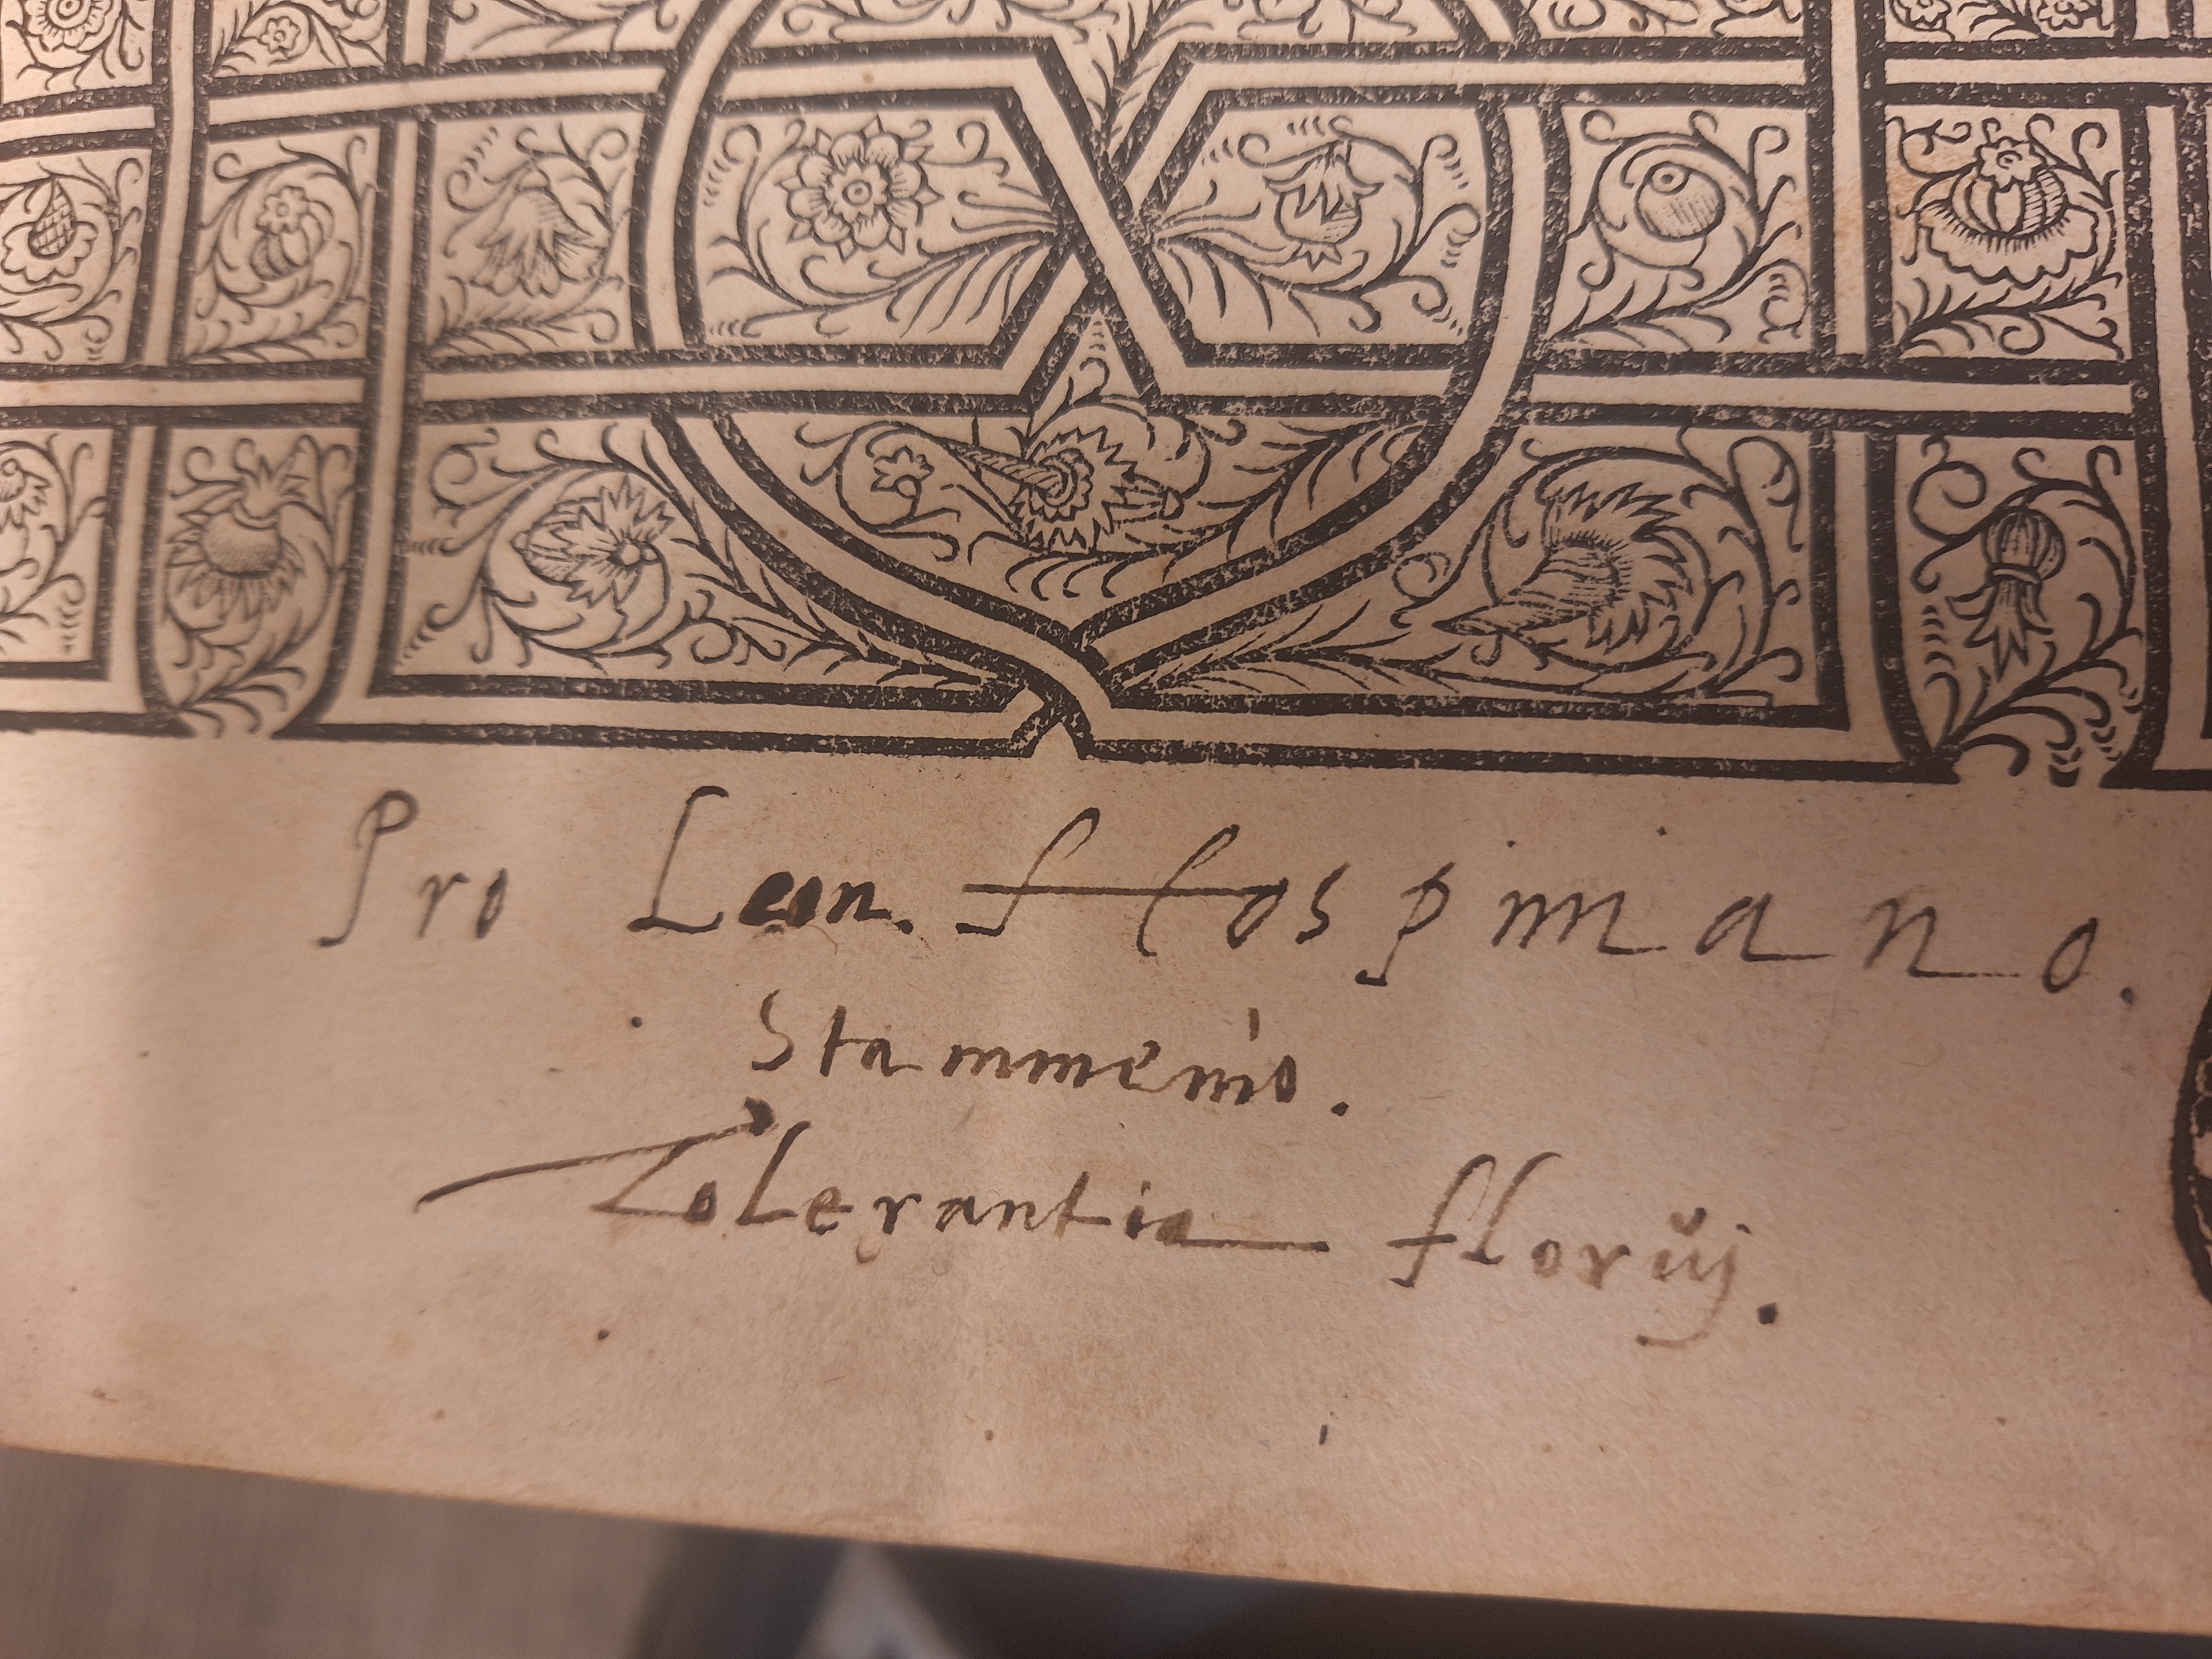 Pro Leon. Hospiniano.
Stammenio.
Tolerantia florüj.